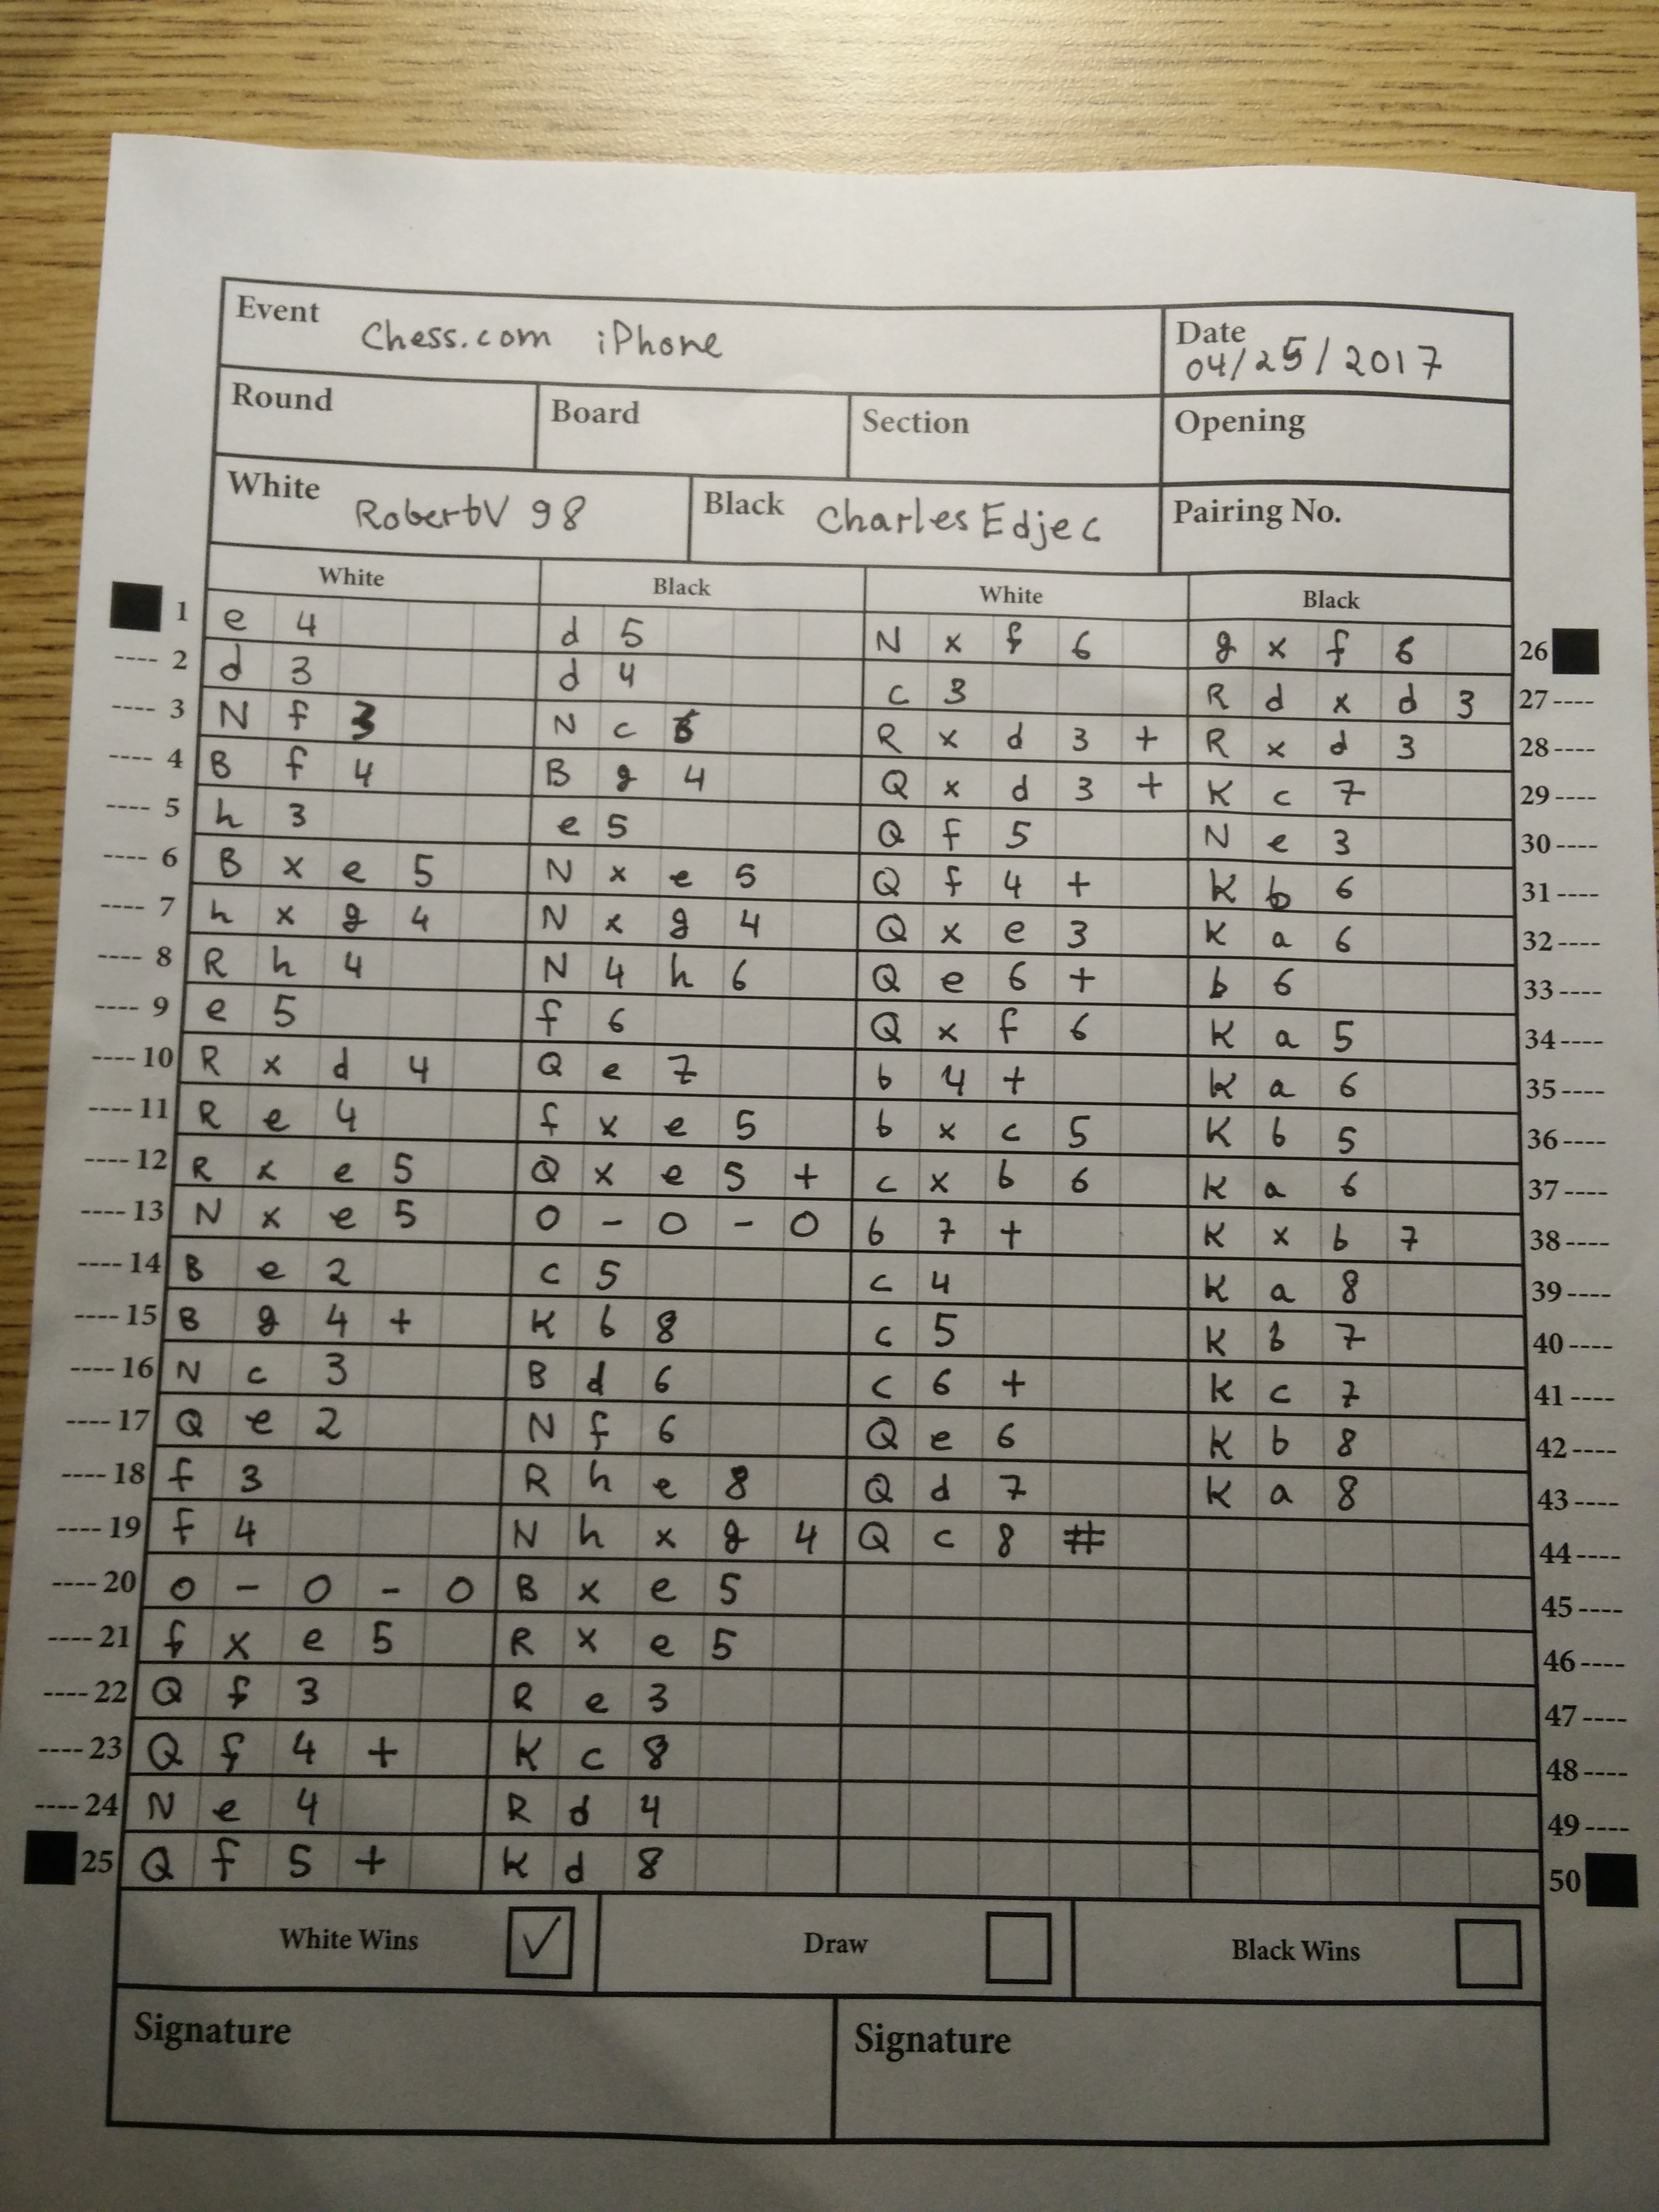 Event Chess.com iPhone Date 04/25/2017
Round Board Section Opening
White RobertV98 Black CharlesEdjec Pairing No.
White Black White Black
1 e4 d5 Nxf6 gxf6 26
---- 2 d3 d4 c3 Rdxd3 27 ----
---- 3 Nf3 Nc6 Rxd3+ Rxd3 28 ----
---- 4 Bf4 Bg4 Qxd3+ Kc7 29 ----
---- 5 h3 e5 Qf5 Ne3 30 ----
---- 6 Bxe5 Nxe5 Qf4+ Kb6 31 ----
---- 7 hxg4 Nxg4 Qxe3 Ka6 32 ----
---- 8 Rh4 N4h6 Qe6+ b6 33 ----
---- 9 e5 f6 Qxf6 Ka5 34 ----
---- 10 Rxd4 Qe7 b4+ Ka6 35 ----
---- 11 Re4 fxe5 bxc5 Kb5 36 ----
---- 12 Rxe5 Qxe5+ cxb6 Ka6 37 ----
---- 13 Nxe5 0-0-0 b7+ Kxb7 38 ----
---- 14 Be2 c5 c4 Ka8 39 ----
---- 15 Bg4+ Kb8 c5 Kb7 40 ----
---- 16 Nc3 Bd6 c6+ Kc7 41 ----
---- 17 Qe2 Nf6 Qe6 Kb8 42 ----
---- 18 f3 Rhe8 Qd7 Ka8 43 ----
---- 19 f4 Nhxg4 Qc8# 44 ----
---- 20 0-0-0 Bxe5 45 ----
---- 21 fxe5 Rxe5 46 ----
---- 22 Qf3 Re3 47 ----
---- 23 Qf4+ Kc8 48 ----
---- 24 Ne4 Rd4 49 ----
25 Qf5+ Kd8 50
White Wins ✓ Draw Black Wins
Signature Signature